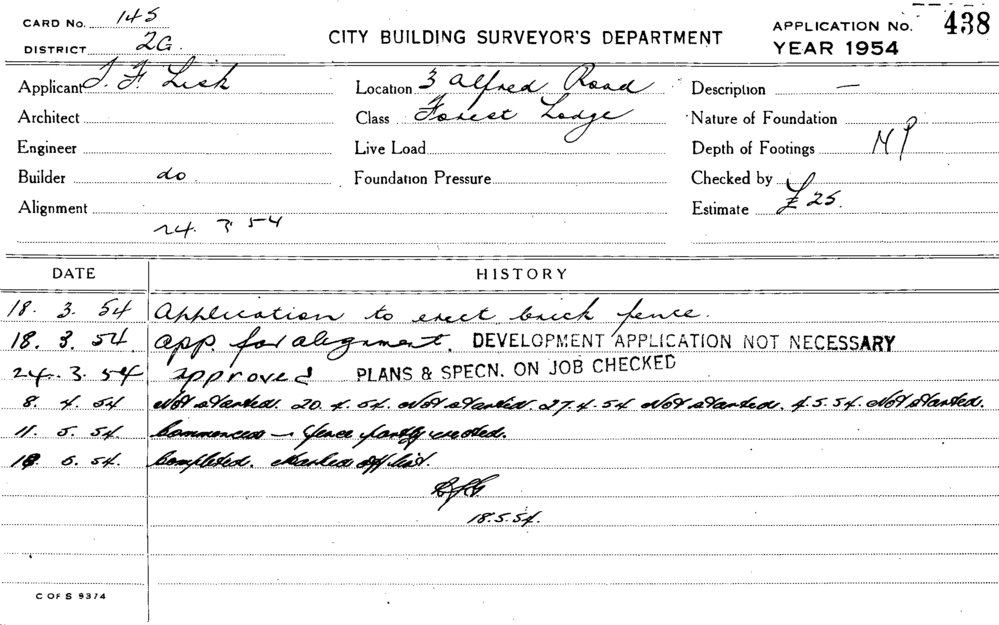 CARD No. 145
DISTRICT 2G.
CITY BUILDING SURVEYOR'S DEPARTMENT
APPLICATION No. 438
YEAR 1954
Applicant J. F. Lisk Location 3 Alfred Road Description —
Architect Class Forest Lodge Nature of Foundation
Engineer Live Load Depth of Footings
Builder do. Foundation Pressure Checked by
Alignment Estimate £25.
24. 3 54
DATE HISTORY
18. 3. 54 Application to erect brick fence.
18. 3. 54. App. for alignment. DEVELOPMENT APPLICATION NOT NECESSARY
24. 3. 54 Approved PLANS & SPECN. ON JOB CHECKED
8. 4. 54 Not started. 20. 4. 54. Not started. 27.4.54 Not started. 4.5.54. Not started.
11. 5. 54. Commenced — fence partly erected.
18 5. 54. Completed. Marked off list.
18.5.54.
C OF S 9374